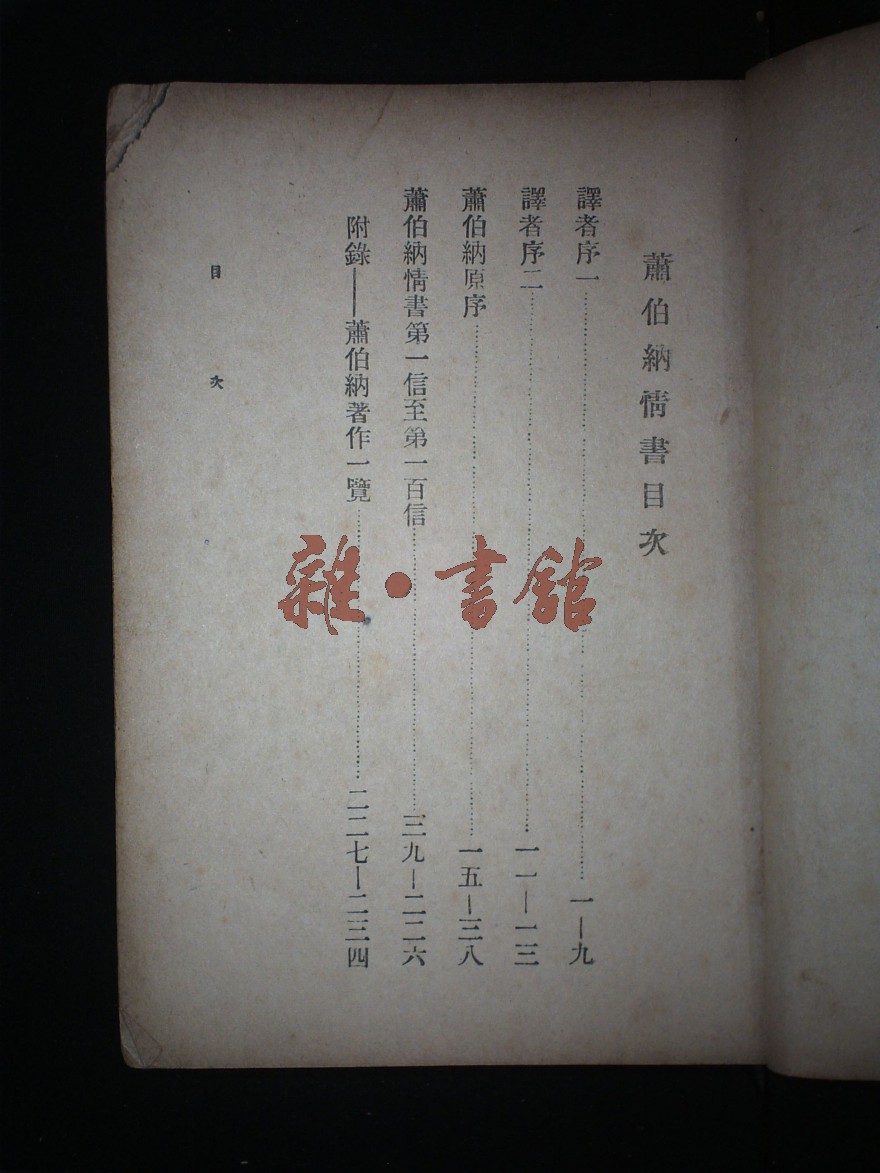 蕭伯納情書目次
譯者序一……一—九
譯者序二……一一—一三
蕭伯納原序……一五—三八
蕭伯納情書第一信至第一百信……三九—二二六
附錄——蕭伯納著作一覽……二二七—二三四
目次
雜·書館